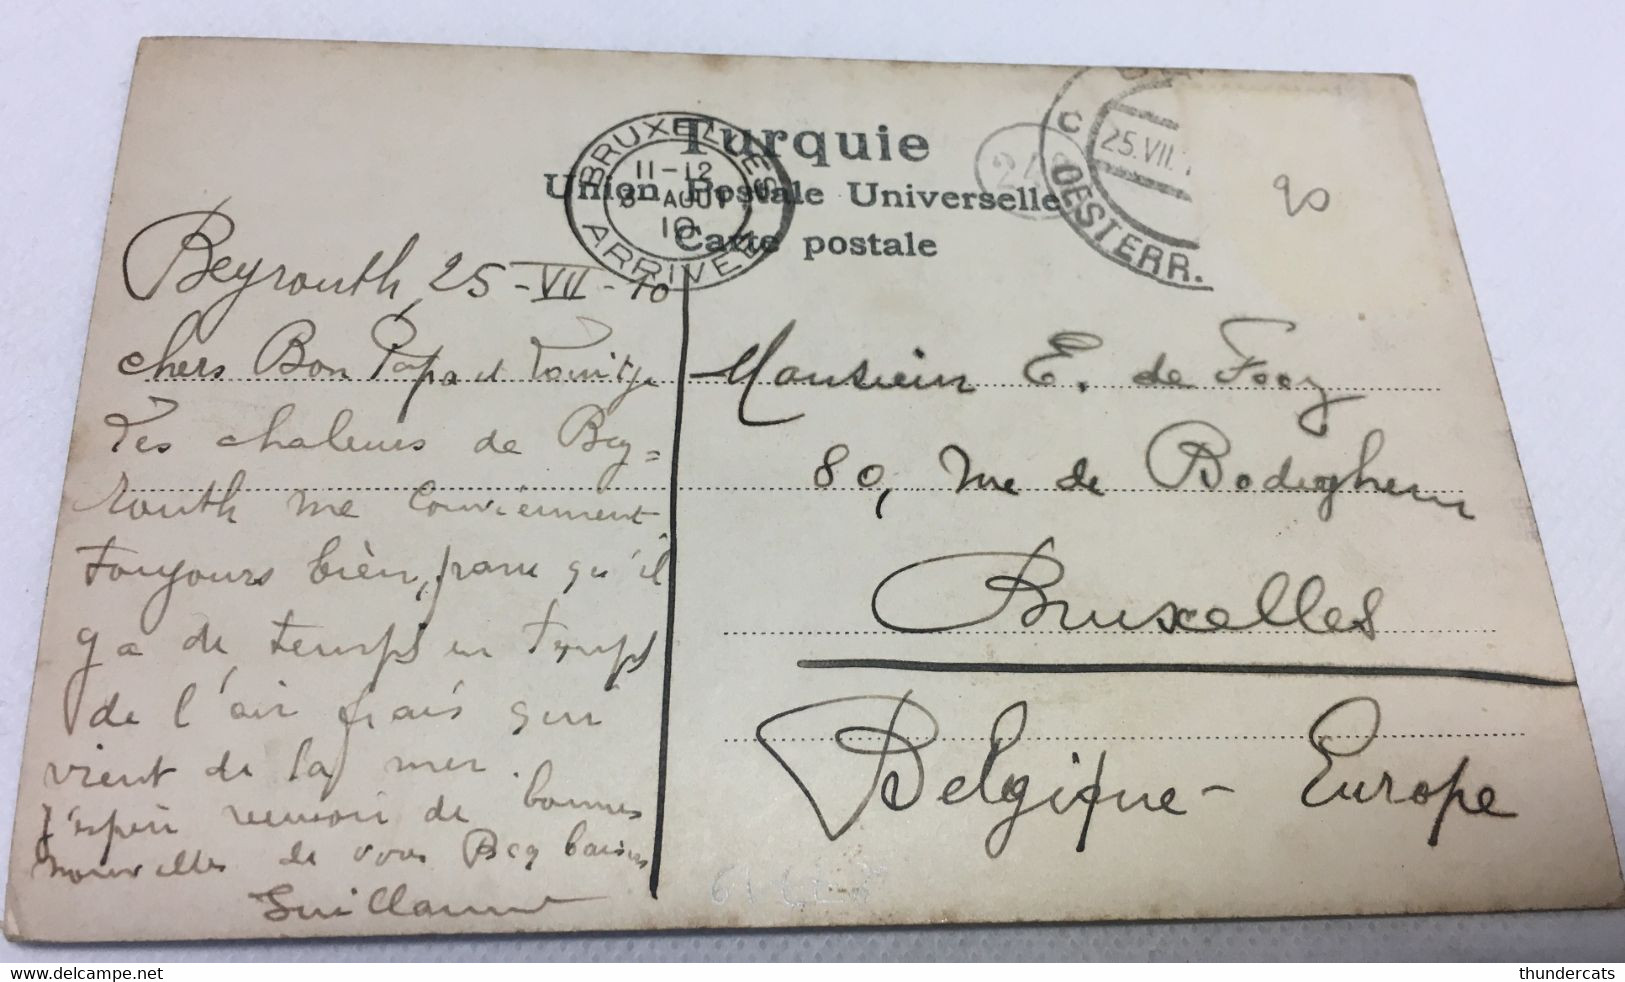 Turquie
Union Postale Universelle
Carte postale
BRUXELLES
11-12
8 AOUT
10
ARRIVEE
C
25.VII.
OESTERR.
24
90
Beyrouth, 25-VII-10
chers Bon Papa et
Les chaleurs de Bey=
routh me conviennent
toujours bien, parce qu'il
y a de temps en temps
de l'air frais qui
vient de la mer.
J'espère recevoir de bonnes
nouvelles de vous Bcq baisers
Guillaume
Monsieur E. de Fooz
80, rue de Bodeghem
Bruxelles
Belgique - Europe
thundercats
delcampe.net